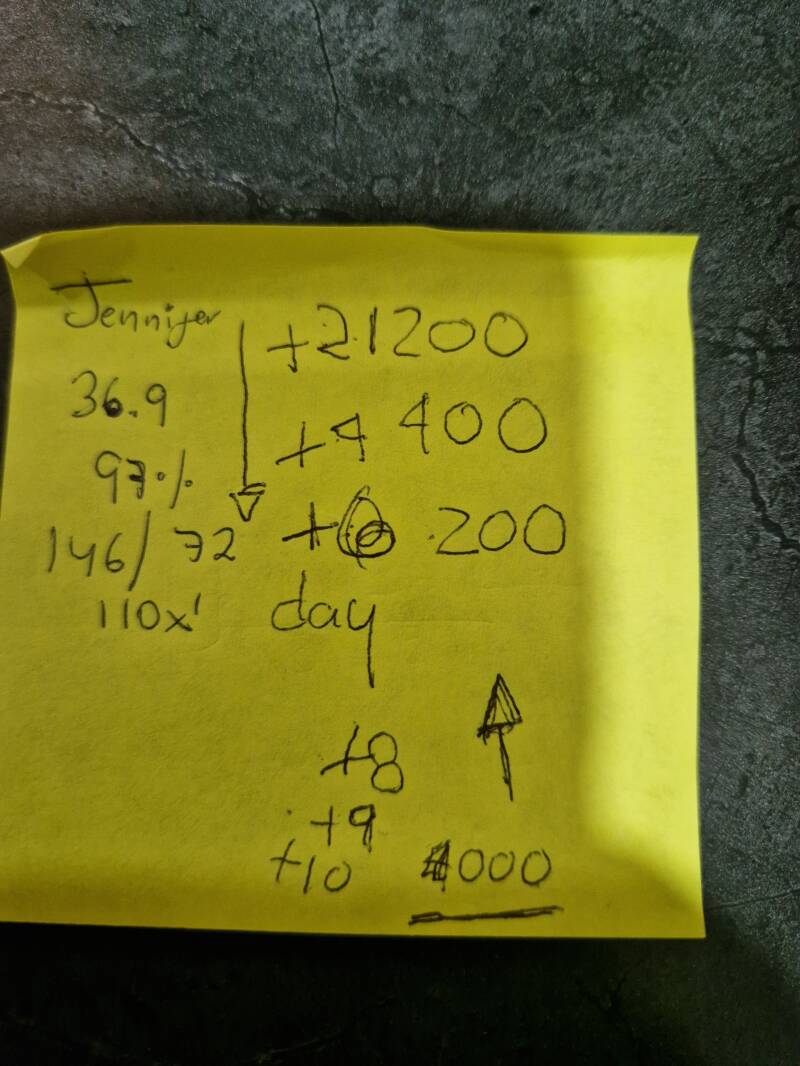 Jennifer
36.9
97%
146/72
110x'
+21200
+4 400
+6 200
day
+8
+9
+10 4000